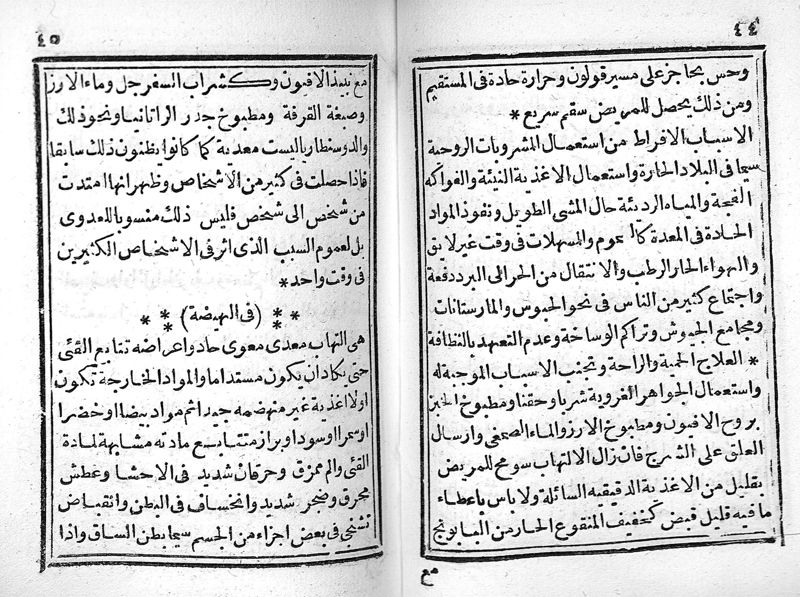 ٤٤
وحس بحاجز على مسير قولون وحرارة حادة فى المستقيم
ومن ذلك يحصل للمريض سقم سريع *
الاسباب الافراط من استعمال المشروبات الروحية
سيما فى البلاد الحارة واستعمال الاغذية النيئة والفواكه
الفجة والمياه الرديئة حال المشى الطويل ونفوذ المواد
الحادة فى المعدة كالسموم والمسهلات فى وقت غير لايق
والهواء الحار الرطب والانتقال من الحر الى البرد دفعة
واجتماع كثير من الناس فى نحو الحبوس والمارستانات
ومجامع الجيوش وتراكم الوساخة وعدم التعهد بالنظافة
* العلاج الحمية والراحة وتجنب الاسباب الموجبة له
واستعمال الجواهر الغروية شربا وحقنا ومطبوخ الخبز
بروح الافيون ومطبوخ الارز والماء الصمغى وارسال
العلق على الشرج فان زال الالتهاب سومح للمريض
بقليل من الاغذية الدقيقيه السائلة ولا باس باعطاء
ما فيه قليل قبض كخفيف المنقوع الحار من البابونج
مع
٤٥
مع نبيذ الافيون وكشراب السفرجل وماء الارز
وصبغة القرفة ومطبوخ جذر الراتانيا ونحو ذلك
والدوسنطاريا ليست معدية كما كانوا يظنون ذلك سابقا
فاذا حصلت فى كثير من الاشخاص وظهر انها امتدت
من شخص الى شخص فليس ذلك منسوبا للعدوى
بل لعموم السبب الذى اثر فى الاشخاص الكثيرين
فى وقت واحد *
* * (فى الهيضة) * *
هى التهاب معدى معوى حاد واعراضه تتابع القئ
حتى يكاد ان يكون مستداما والمواد الخارجة تكون
اولا اغذية غير منهضمه جيدا ثم مواد بيضا او خضرا
او سمرا او سودا وبراز متتابع مادته مشابهة لمادة
القئ والم ممزق وحرقان شديد فى الاحشا وعطش
محرق وضجر شديد وانخساف فى البطن وانقباض
تشنجى فى بعض اجزاء من الجسم سيما بطن الساق واذا